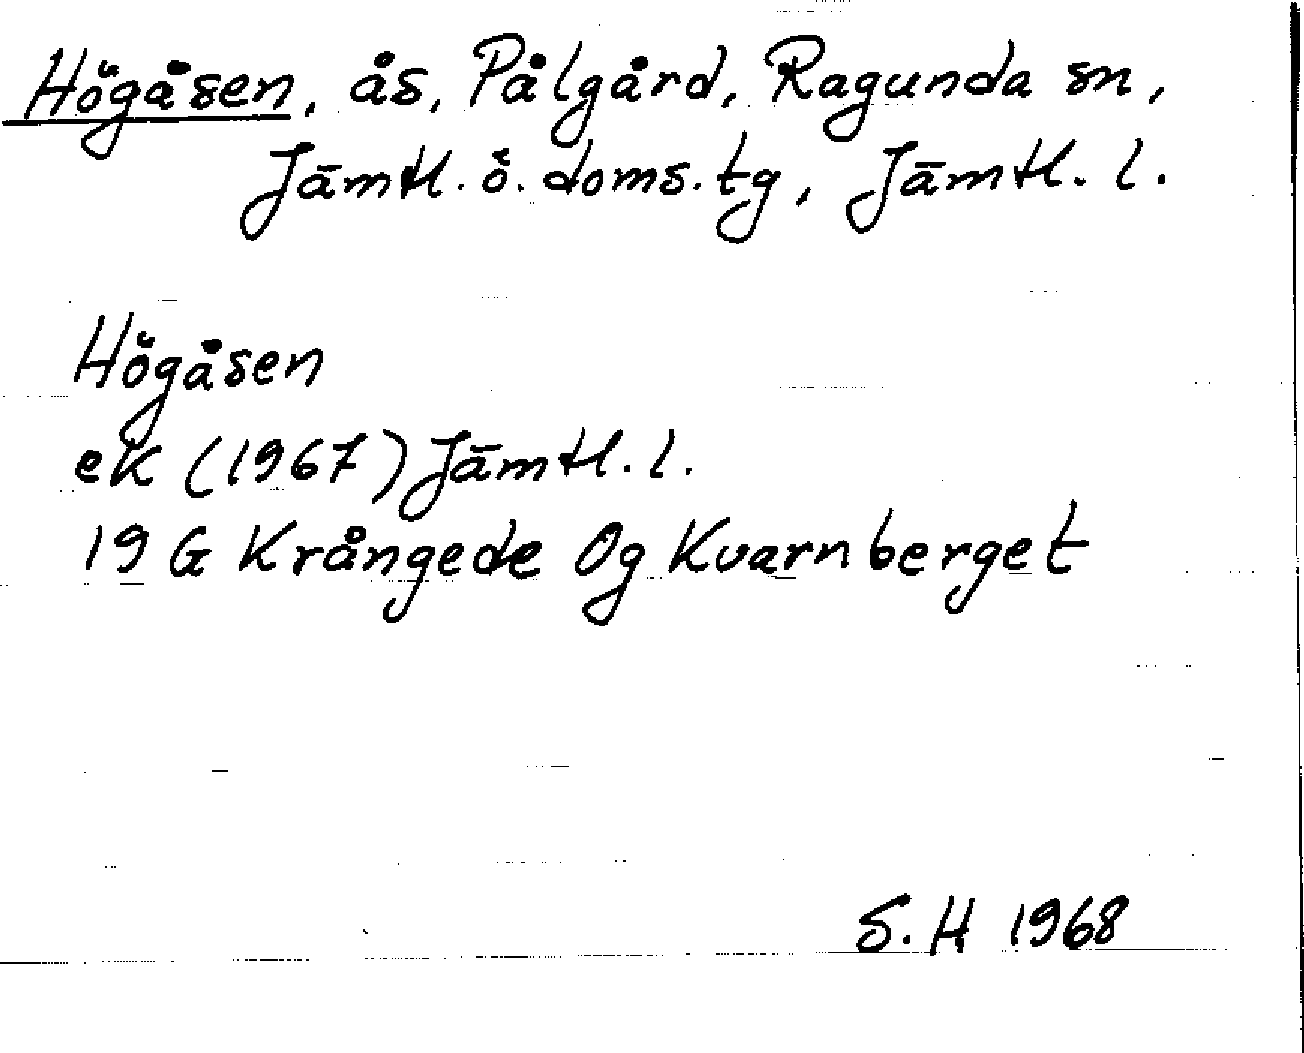 Högåsen, ås, Pålgård, Ragunda sn,
Jämtl. ö. doms. tg, Jämtl. l.
Högåsen
ek (1967) Jämtl. l.
19 G Krångede Og Kvarnberget
S. H 1968